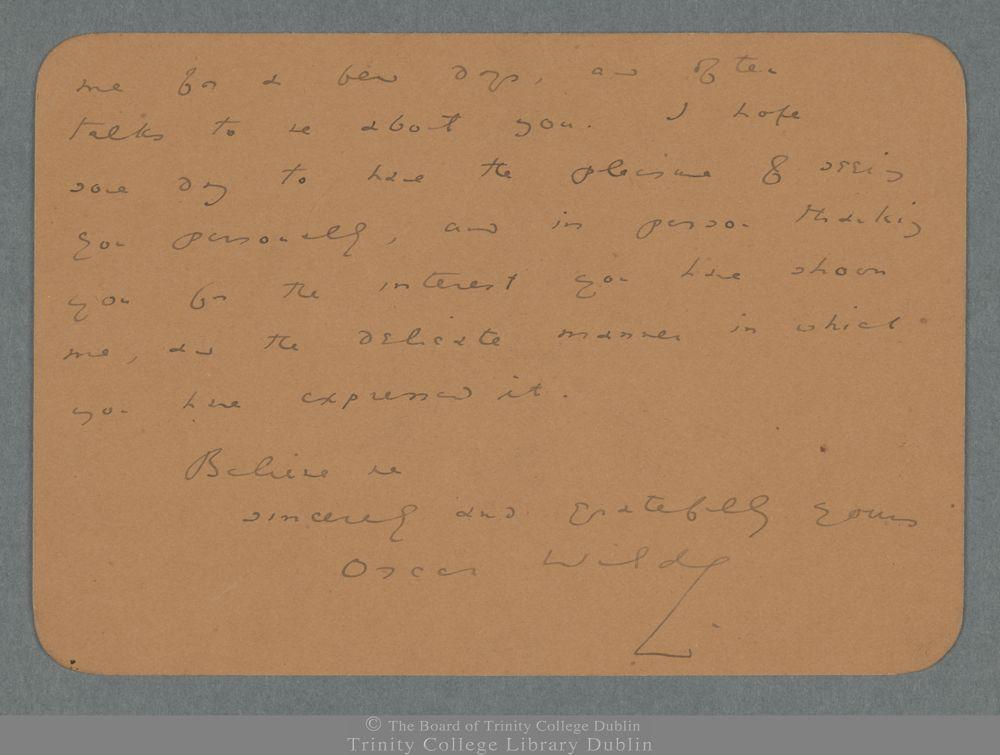 me for a few days, and often
talks to me about you. I hope
some day to have the pleasure of seeing
you personally, and in person thanking
you for the interest you have shown
me, and the delicate manner in which
you have expressed it.
Believe me
sincerely and gratefully yours
Oscar Wilde
© The Board of Trinity College Dublin
Trinity College Library Dublin